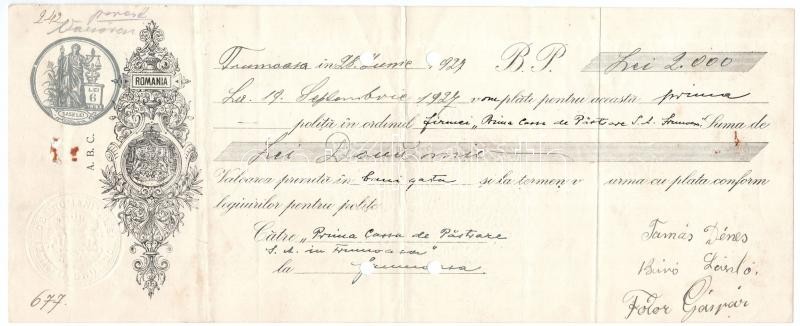 242
ROMANIA
LEI
6
ȘASE LEI
A. B. C.
Frumoasa in 28 Iunie 1927 B. P. Lei 2.000
La 19 Septembrie 1927 vom plăti pentru aceasta prima
poliță în ordinul firmei "Prima Cassa de Păstrare S. A. Frumoasa" Suma de
Lei Douămii
Valoarea primită în bani gata și la termen v urma cu plata conform
legiuirilor pentru polițe.
Către "Prima Cassa de Păstrare
S. A. in Frumoasa"
la Frumoasa
Tamás Dénes
Biró László.
Fodor Gáspár
677.